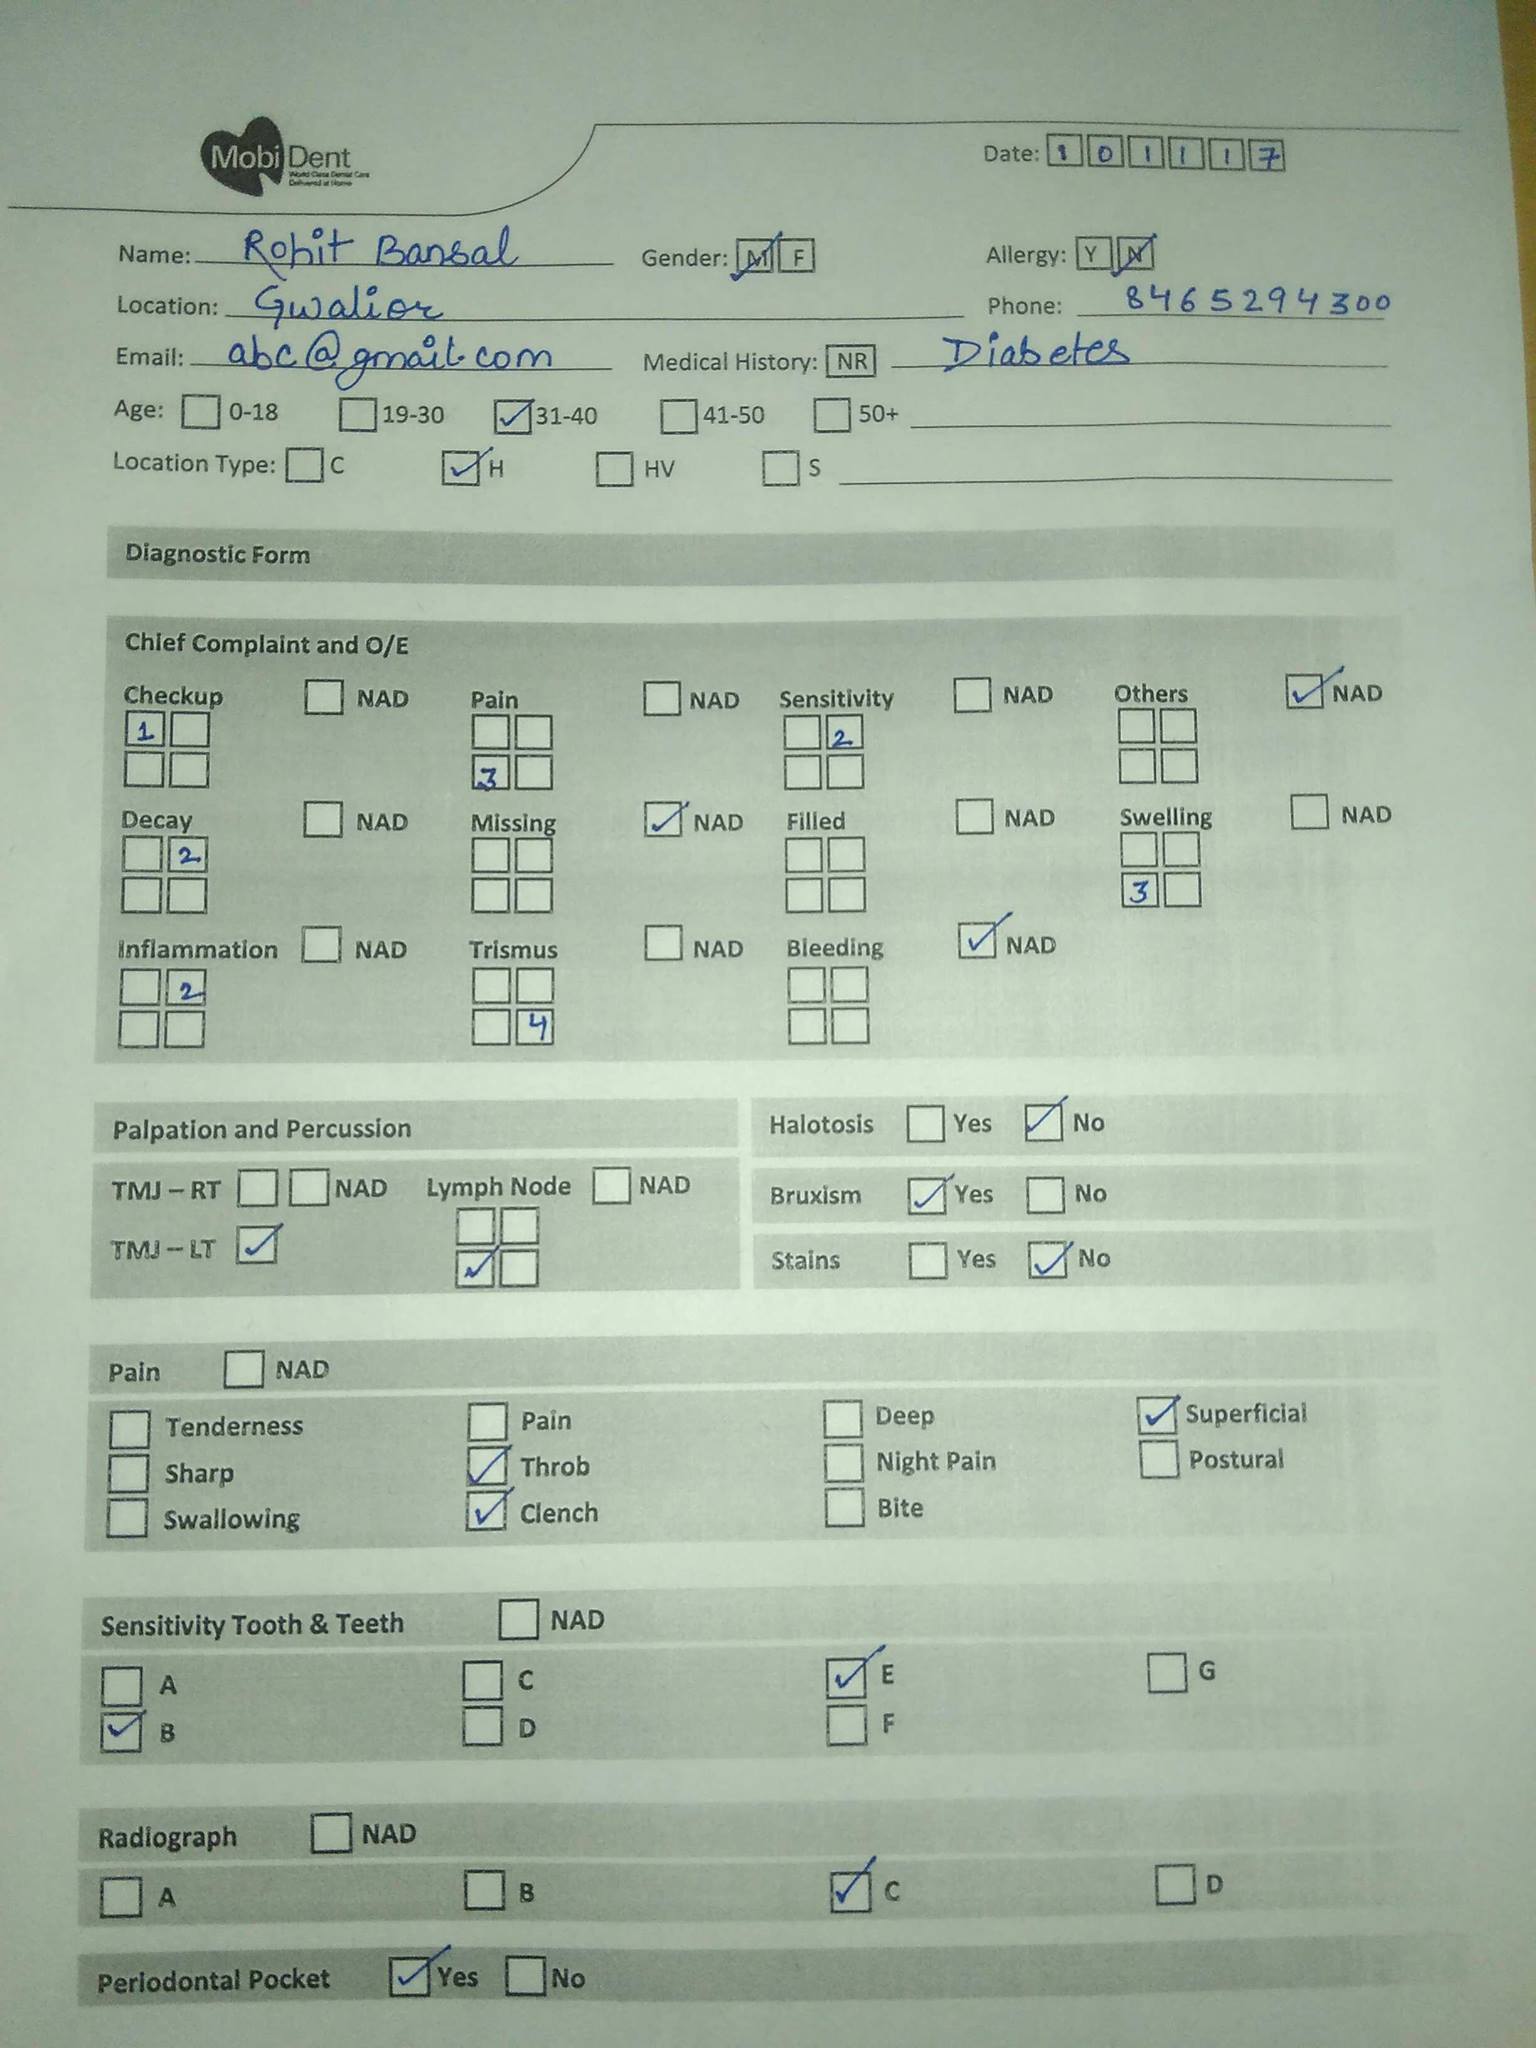 MobiDent
World Class Dental Care
Delivered at Home
Date: 1 0 1 1 1 7
Name: Rohit Bansal Gender: M F Allergy: Y N
Location: Gwalior Phone: 8465294300
Email: abc@gmail.com Medical History: NR Diabetes
Age: 0-18 19-30 31-40 41-50 50+
Location Type: C H HV S
Diagnostic Form
Chief Complaint and O/E
Checkup NAD Pain NAD Sensitivity NAD Others NAD
1 2
3
Decay NAD Missing NAD Filled NAD Swelling NAD
2
3
Inflammation NAD Trismus NAD Bleeding NAD
2
4
Palpation and Percussion Halotosis Yes No
TMJ – RT NAD Lymph Node NAD Bruxism Yes No
TMJ – LT Stains Yes No
Pain NAD
Tenderness Pain Deep Superficial
Sharp Throb Night Pain Postural
Swallowing Clench Bite
Sensitivity Tooth & Teeth NAD
A C E G
B D F
Radiograph NAD
A B C D
Periodontal Pocket Yes No